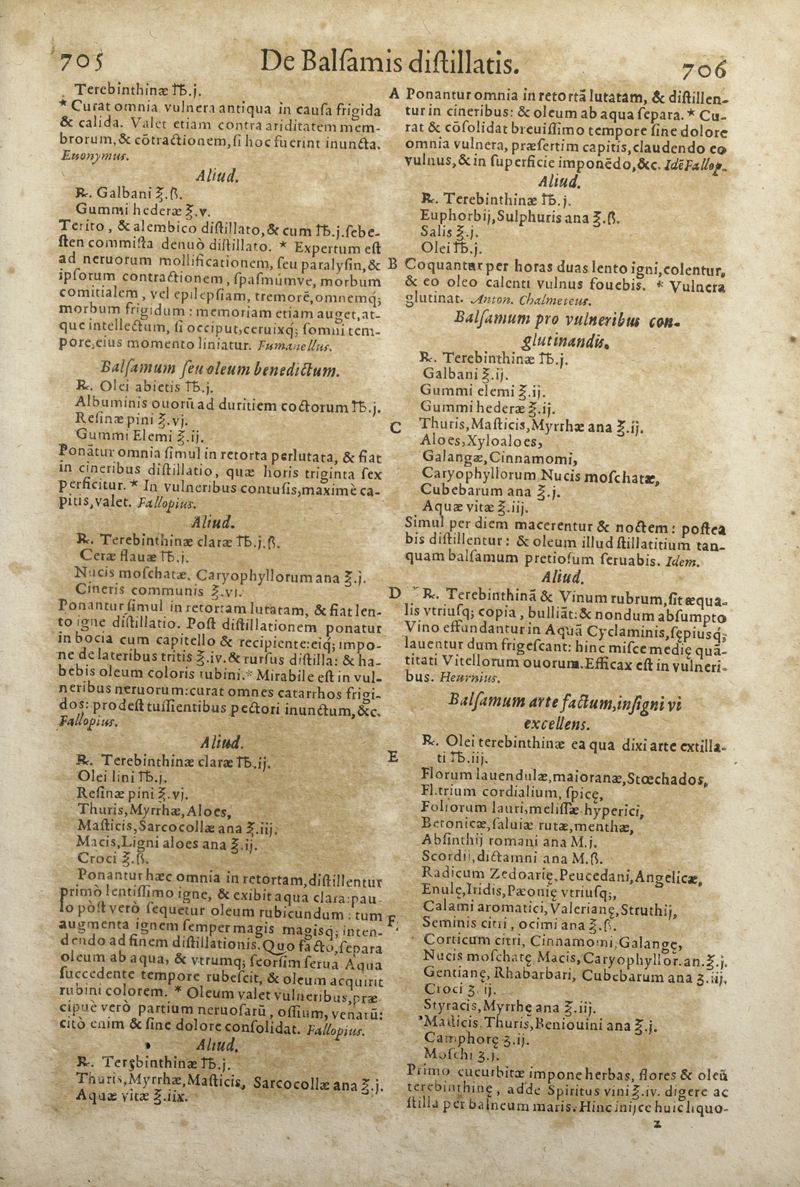 705
De Balſamis diſtillatis.
706
Terebinthinæ ℔.j.
* Curat omnia vulnera antiqua in cauſa frigida
& calida. Valet etiam contra ariditatem mem-
brorum, & cōtractionem, ſi hoc fuerint inuncta.
Euonymus.
Aliud.
℞. Galbani ℥.ß.
Gummi hederæ ℥.v.
Terito, & alembico diſtillato, & cum ℔.j. ſebe-
ſten commiſta denuò diſtillato. * Expertum eſt
ad neruorum mollificationem, ſeu paralyſin, &
ipſorum contractionem, ſpaſmúmve, morbum
comitialem, vel epilepſiam, tremorē, omnemq;
morbum frigidum: memoriam etiam auget, at-
que intellectum, ſi occiput, ceruixq; ſomni tem-
pore, eius momento liniatur. Fumanellus.
Balſamum ſeu oleum benedictum.
℞. Olei abietis ℔.j.
Albuminis ouorū ad duritiem coctorum ℔.j.
Reſinæ pini ℥.vj.
Gummi Elemi ℥.ij.
Ponātur omnia ſimul in retorta perlutata, & fiat
in cineribus diſtillatio, quæ horis triginta ſex
perficitur. * In vulneribus contuſis, maximè ca-
pitis, valet. Fallopius.
Aliud.
℞. Terebinthinæ claræ ℔.j.ß.
Ceræ flauæ ℔.j.
Nucis moſchatæ, Caryophyllorum ana ℥.j.
Cineris communis ℥.vj.
Ponantur ſimul in retortam lutatam, & fiat len-
to igne diſtillatio. Poſt diſtillationem ponatur
in bocia cum capitello & recipiente: eiq; impo-
ne de lateribus tritis ℥.iv. & rurſus diſtilla: & ha-
bebis oleum coloris rubini. * Mirabile eſt in vul-
neribus neruorum: curat omnes catarrhos frigi-
dos: prodeſt tuſſientibus pectori inunctum, &c.
Fallopius.
Aliud.
℞. Terebinthinæ claræ ℔.ij.
Olei lini ℔.j.
Reſinæ pini ℥.vj.
Thuris, Myrrhæ, Aloes,
Maſticis, Sarcocollæ ana ℥.iij.
Macis, Ligni aloes ana ℥.ij.
Croci ℥.ß.
Ponantur hæc omnia in retortam, diſtillentur
primò lentiſſimo igne, & exibit aqua clara: pau-
lo pòſt verò ſequetur oleum rubicundum: tum
augmenta ignem ſemper magis magisq; inten-
dendo ad finem diſtillationis. Quo facto, ſepara
oleum ab aqua, & vtrumq; ſeorſim ſerua Aqua
ſuccedente tempore rubeſcit, & oleum acquirit
rubini colorem. * Oleum valet vulneribus, præ-
cipuè verò partium neruoſarū, oſſium, venarū:
citò enim & ſine dolore conſolidat. Fallopius.
Aliud.
℞. Terebinthinæ ℔.j.
Thuris, Myrrhæ, Maſticis, Sarcocollæ ana ℥.j.
Aquæ vitæ ℥.iix.
A Ponantur omnia in retortā lutatam, & diſtillen-
tur in cineribus: & oleum ab aqua ſepara. * Cu-
rat & cōſolidat breuiſſimo tempore ſine dolore
omnia vulnera, præſertim capitis, claudendo eo
vulnus, & in ſuperficie imponēdo, &c. Idē Fallop.
Aliud.
℞. Terebinthinæ ℔.j.
Euphorbij, Sulphuris ana ℥.ß.
Salis ℥.j.
Olei ℔.j.
B Coquantur per horas duas lento igni, colentur,
& eo oleo calenti vulnus fouebis. * Vulnera
glutinat. Anton. Chalmeteus.
Balſamum pro vulneribus con-
glutinandis.
℞. Terebinthinæ ℔.j.
Galbani ℥.ij.
Gummi elemi ℥.ij.
Gummi hederæ ℥.ij.
C Thuris, Maſticis, Myrrhæ ana ℥.ij.
Aloes, Xyloaloes,
Galangæ, Cinnamomi,
Caryophyllorum, Nucis moſchatæ,
Cubebarum ana ℥.j.
Aquæ vitæ ℥.iij.
Simul per diem macerentur & noctem: poſtea
bis diſtillentur: & oleum illud ſtillatitium tan-
quam balſamum pretioſum ſeruabis. Idem.
Aliud.
D ℞. Terebinthinā & Vinum rubrum, ſit æqua-
lis vtriuſq; copia, bulliāt: & nondum abſumpto
Vino effundantur in Aquā Cyclaminis, ſępiusq;
lauentur dum frigeſcant: hinc miſce medię quā-
titati Vitellorum ouorum. Efficax eſt in vulneri-
bus. Heurnius.
Balſamum arte factum, inſigni vi
excellens.
℞. Olei terebinthinæ ea qua dixi arte extilla-
E ti ℔.iij.
Florum lauendulæ, maioranæ, Stœchados,
Fl. trium cordialium, ſpicę,
Foliorum lauri, meliſſæ hyperici,
Betonicæ, ſaluiæ rutæ, menthæ,
Abſinthij romani ana M.j.
Scordij, dictamni ana M.ß.
Radicum Zedoarię, Peucedani, Angelicæ,
Enulę, Iridis, Pæonię vtriuſq;,
Calami aromatici, Valerianę, Struthij,
F Seminis citri, ocimi ana ℥.ß.
Corticum citri, Cinnamomi, Galangę,
Nucis moſchatę Macis, Caryophyllor. an. ℥.j.
Gentianę, Rhabarbari, Cubebarum ana ʒ.iij.
Croci ʒ ij.
Styracis, Myrrhę ana ℥.iij.
Maſticis Thuris, Beniouini ana ℥.j.
Camphorę ʒ.ij.
Moſchi ʒ.j.
Primo cucurbitæ impone herbas, flores & oleū
terebinthinę, adde Spiritus vini ℥.iv. digere ac
ſtilla per balneum maris. Hinc inijce huic liquo-
z